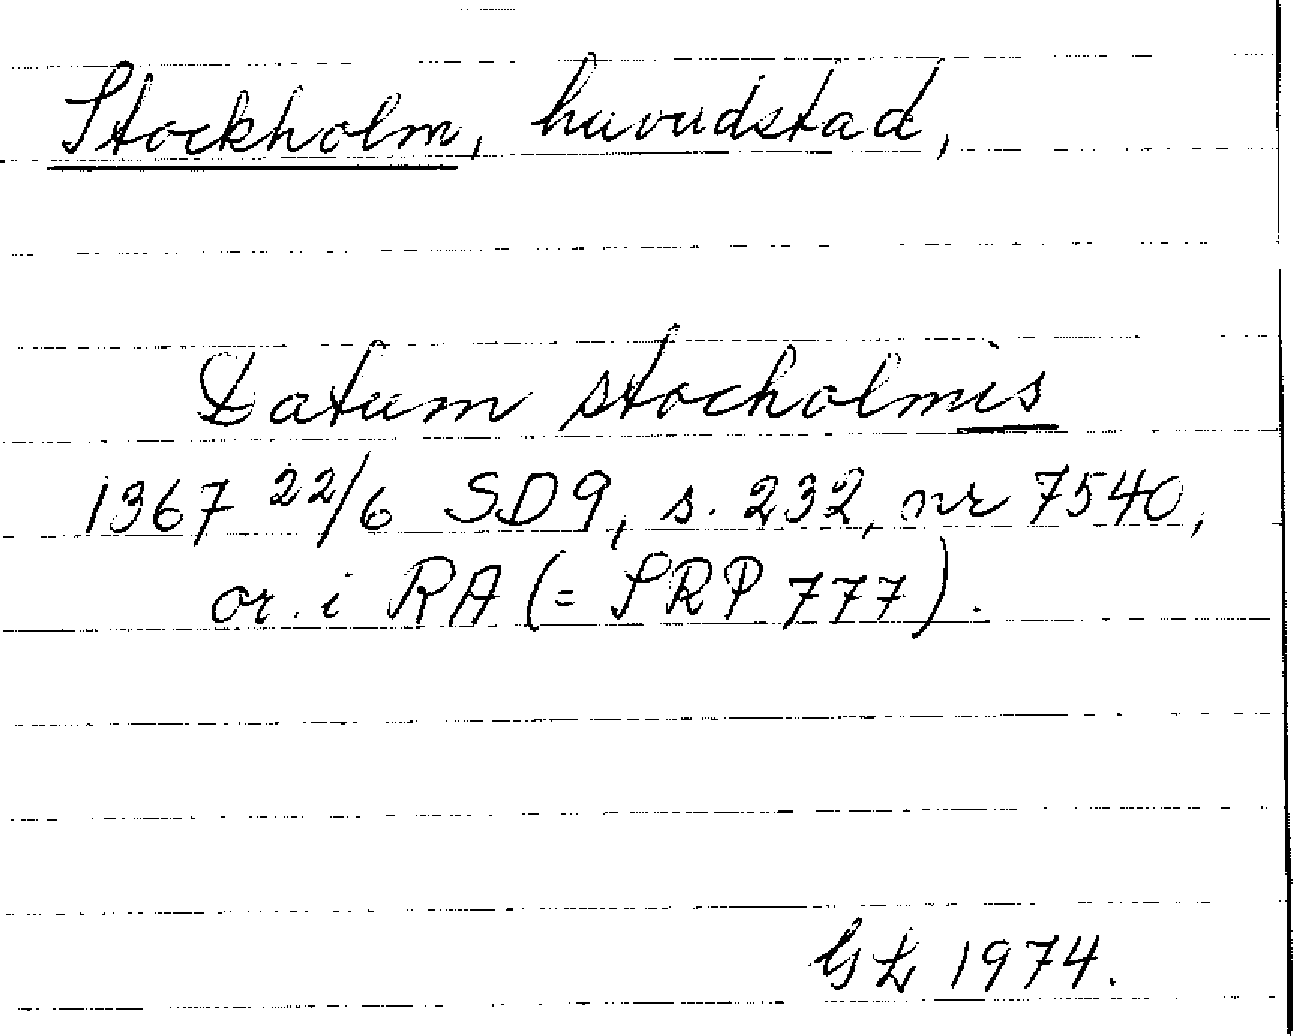 Stockholm, huvudstad,
Datum stocholmis
1367 22/6 SD9, s. 232, nr 7540,
or. i RA (= SRP 777).
GL 1974.